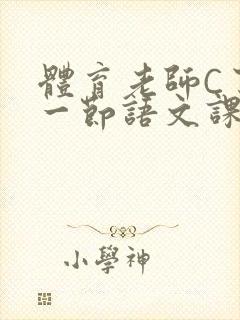 體育老師C了
一節語文課
小學神